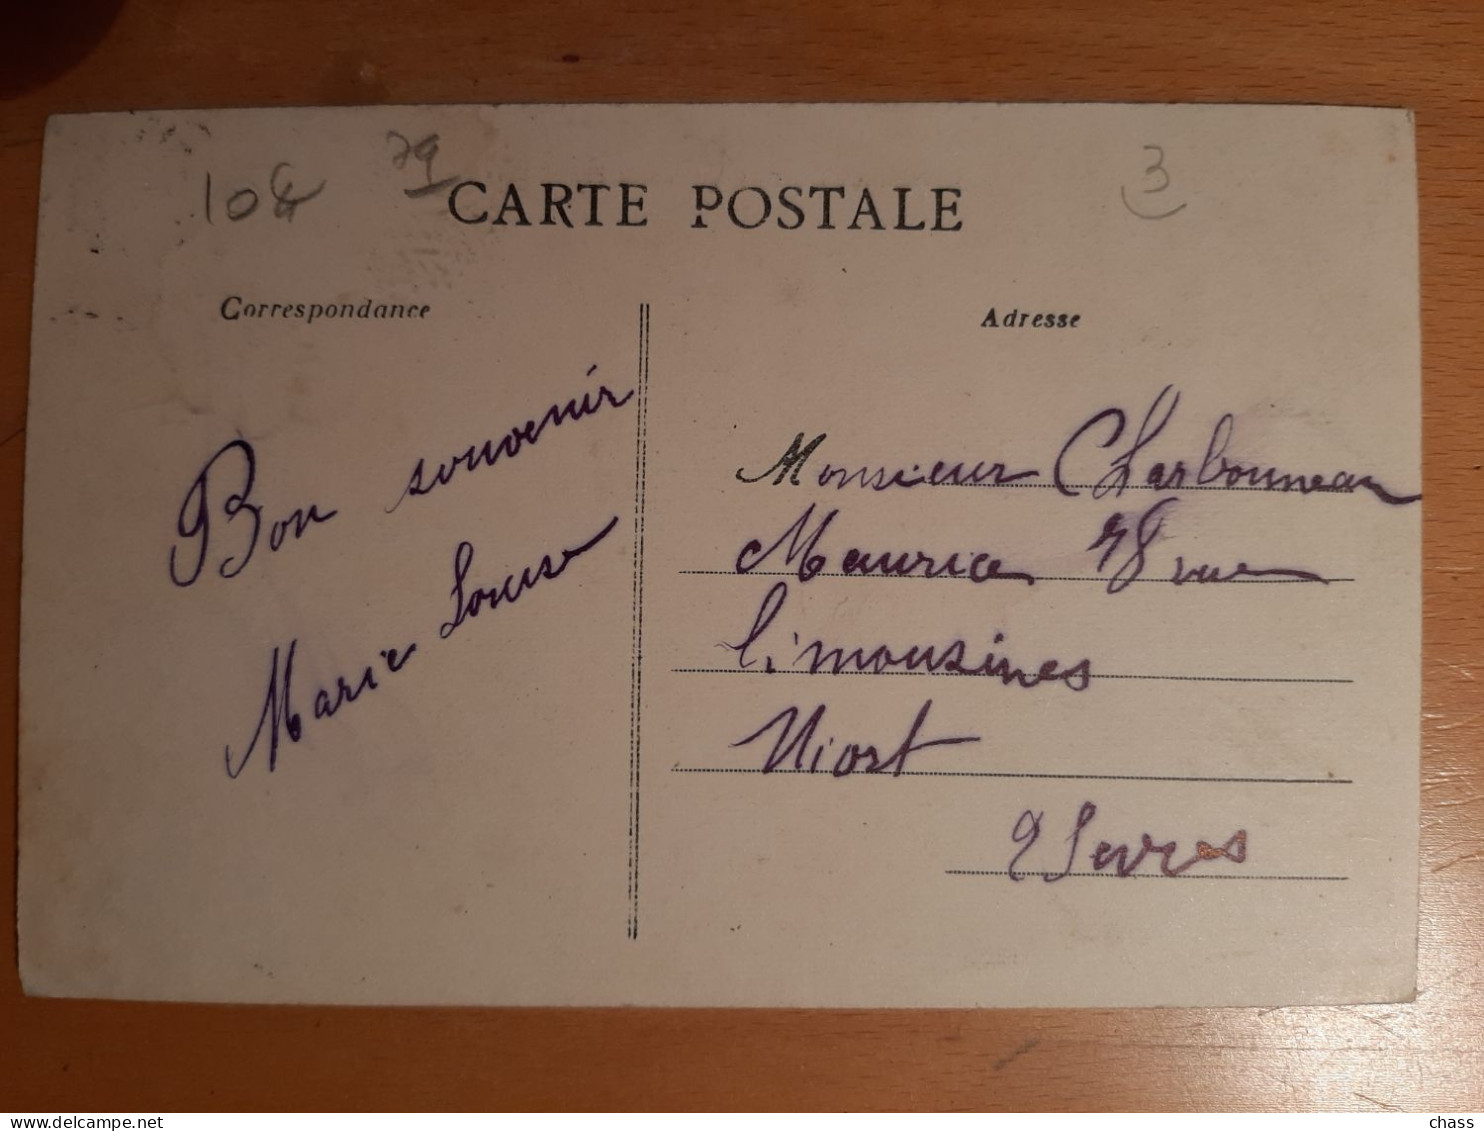 79
3
CARTE POSTALE
Correspondance
Adresse
Bon souvenir
Marie Louise
Monsieur Charbonneau
Maurice 78 rue
limousines
Niort
2 Sevres
chass